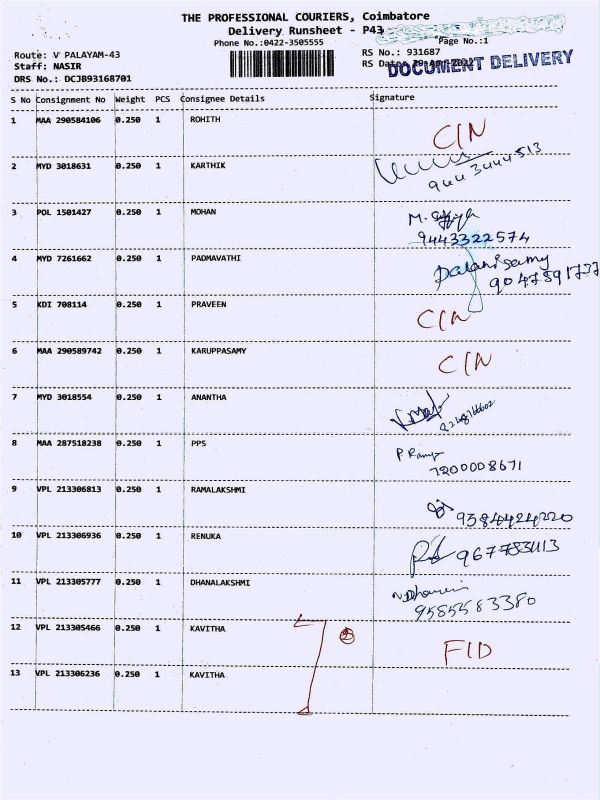 THE PROFESSIONAL COURIERS, Coimbatore
Delivery Runsheet - P43
Phone No.:0422-3505555
Page No.:1
Route: V PALAYAM-43
RS No.: 931687
Staff: NASIR
RS Date:
DOCUMENT DELIVERY
DRS No.: DCJB93168701
S No Consignment No Weight PCS Consignee Details Signature
1 MAA 290584106 0.250 1 ROHITH C/N
2 MYD 3018631 0.250 1 KARTHIK
9443444513
3 POL 1501427 0.250 1 MOHAN
9443322574
4 MYD 7261662 0.250 1 PADMAVATHI Palanisamy
5 KDI 708114 0.250 1 PRAVEEN C/N
6 MAA 290589742 0.250 1 KARUPPASAMY C/N
7 MYD 3018554 0.250 1 ANANTHA
8 MAA 287518238 0.250 1 PPS
7200008671
9 VPL 213306813 0.250 1 RAMALAKSHMI
9384424220
10 VPL 213306936 0.250 1 RENUKA
11 VPL 213305777 0.250 1 DHANALAKSHMI
9585583380
12 VPL 213305466 0.250 1 KAVITHA FID
13 VPL 213306236 0.250 1 KAVITHA